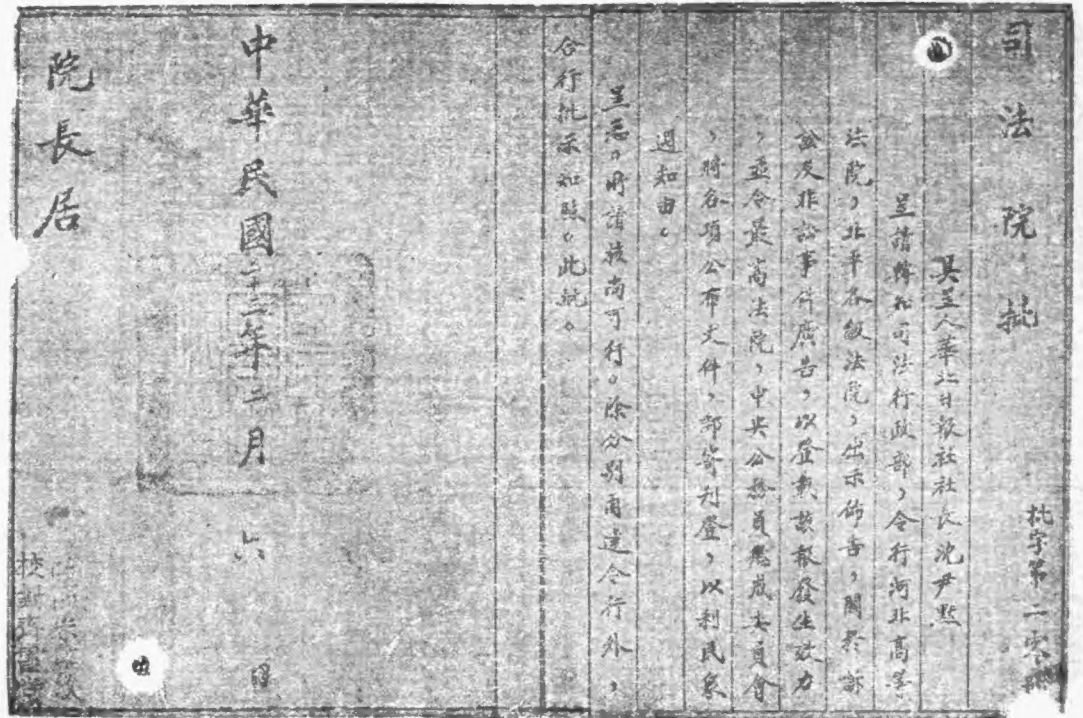 司法院批
批字第二零
具呈人華北日報社社長沈尹默
呈請轉飭司法行政部，令行河北高等
法院，北平各級法院，出示佈告，關於訴
訟及非訟事件廣告，以登載該報發生效力
，並令最高法院，中央公務員懲戒委員會
，將各項公布文件，郵寄刊登，以利民衆
週知由。
呈悉。所請核尚可行。除分別函達令行外，
合行批示知照。此批。
中華民國二十二年十二月六日
院長居
校對